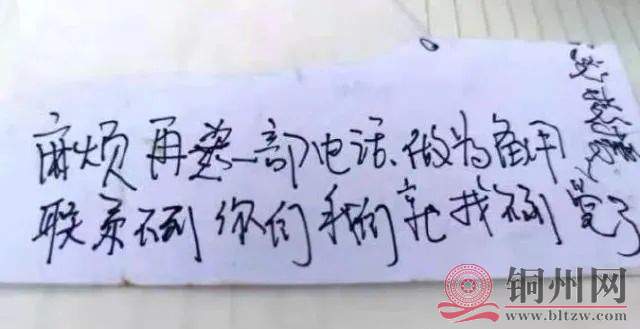 麻烦再装一部电话、做为备用
联系不到你们我们就找不到党了
铜州网
www.bltzw.com